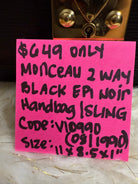 $649 ONLY
MONCEAU 2 WAY
BLACK EPI NOIR
Handbag | SLING
CODE: V10990
(081990)
Size: 11"X8.5X1"